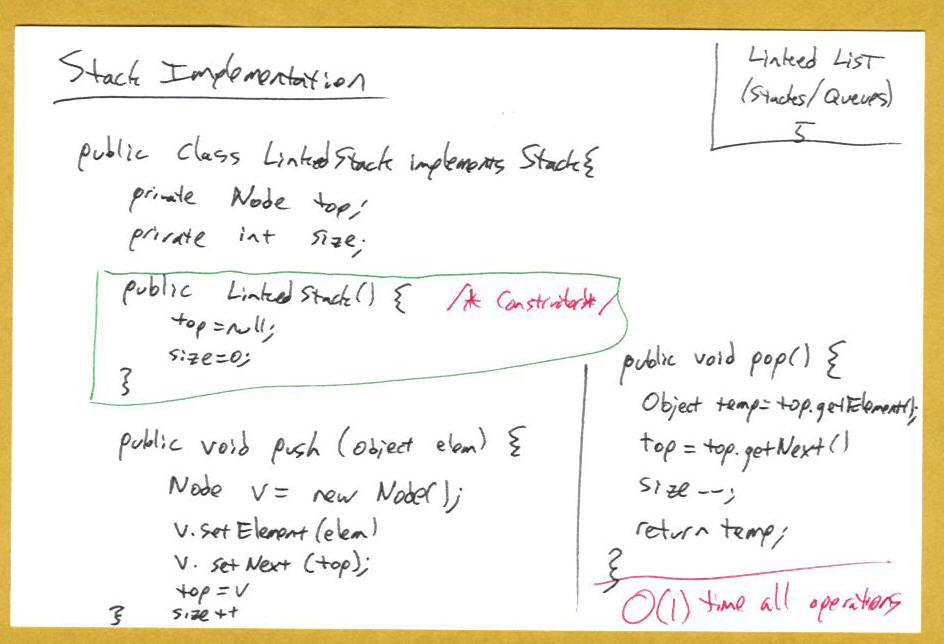 Stack Implementation
Linked List
(Stacks/Queues)
5
public class LinkedStack implements Stack{
private Node top;
private int size;
public LinkedStack() { /* Constructor */
top=null;
size=0;
}
public void push (object elem) {
Node v = new Node();
v.setElement(elem)
v. setNext (top);
top=v
size++
}
public void pop() {
Object temp=top.getElement();
top = top.getNext()
size --;
return temp;
}
O(1) time all operations